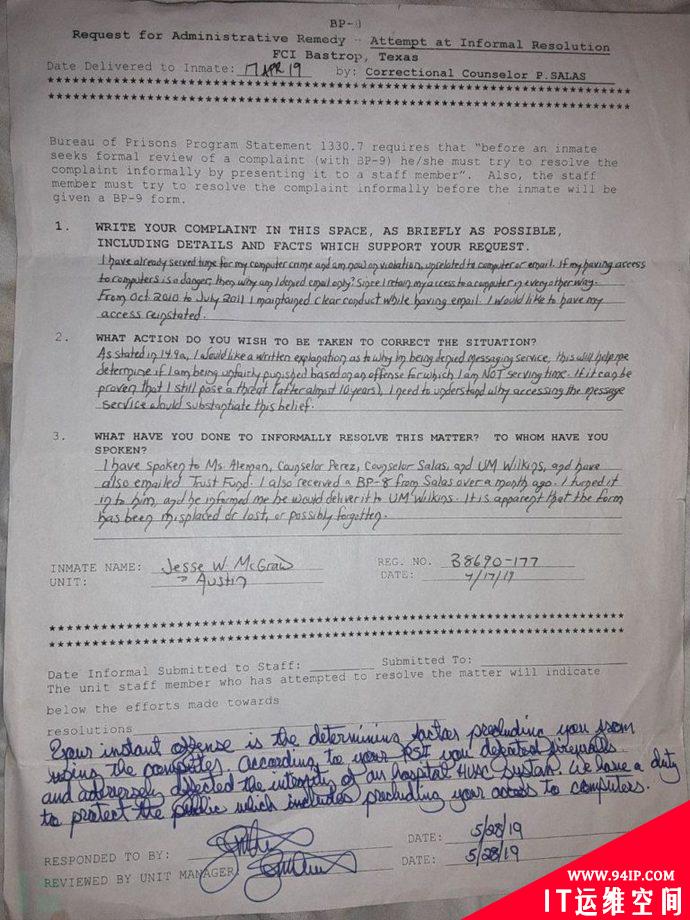 BP-8
Request for Administrative Remedy - Attempt at Informal Resolution
FCI Bastrop, Texas
Date Delivered to Inmate: 17 APR 19 by: Correctional Counselor P.SALAS
************************************************************
************************************************************
Bureau of Prisons Program Statement 1330.7 requires that "before an inmate
seeks formal review of a complaint (with BP-9) he/she must try to resolve the
complaint informally by presenting it to a staff member". Also, the staff
member must try to resolve the complaint informally before the inmate will be
given a BP-9 form.
1. WRITE YOUR COMPLAINT IN THIS SPACE, AS BRIEFLY AS POSSIBLE,
INCLUDING DETAILS AND FACTS WHICH SUPPORT YOUR REQUEST.
I have already served time for my computer crime and am now on violation, unrelated to computer or email. If my having access
to computers is a danger, then why am I denied email only? Since I retain my access to a computer in every other way.
From Oct. 2010 to July 2011 I maintained clear conduct while having email. I would like to have my
access reinstated.
2. WHAT ACTION DO YOU WISH TO BE TAKEN TO CORRECT THE SITUATION?
As stated in 14.9a, I would like a written explanation as to why Im being denied messaging service, this will help me
determine if I am being unfairly punished based on an offense for which I am NOT serving time. If it can be
proven that I still pose a threat (after almost 10 years), I need to understand why accessing the message
service would substantiate this belief.
3. WHAT HAVE YOU DONE TO INFORMALLY RESOLVE THIS MATTER? TO WHOM HAVE YOU
SPOKEN?
I have spoken to Ms. Aleman, Counselor Perez, Counselor Salas, and UM Wilkins, and have
also emailed Trust Fund. I also received a BP-8 from Salas over a month ago. I turned it
in to him, and he informed me he would deliver it to UM Wilkins. It is apparent that the form
has been misplaced or lost, or possibly forgotten.
INMATE NAME: Jesse W. McGraw REG. NO. 38690-177
UNIT: Austin DATE: 4/17/19
************************************************************
************************************************************
Date Informal Submitted to Staff: Submitted To:
The unit staff member who has attempted to resolve the matter will indicate
below the efforts made towards
resolutions
Your instant offense is the determining factor precluding you from
using the computer. According to your PSI you defeated firewalls
and adversely affected the integrity of an hospital HVAC system. We have a duty
to protect the public which includes precluding your access to computers.
RESPONDED TO BY: DATE: 5/28/19
REVIEWED BY UNIT MANAGER: DATE: 5/28/19
WWW.94IP.COM
IT运维空间